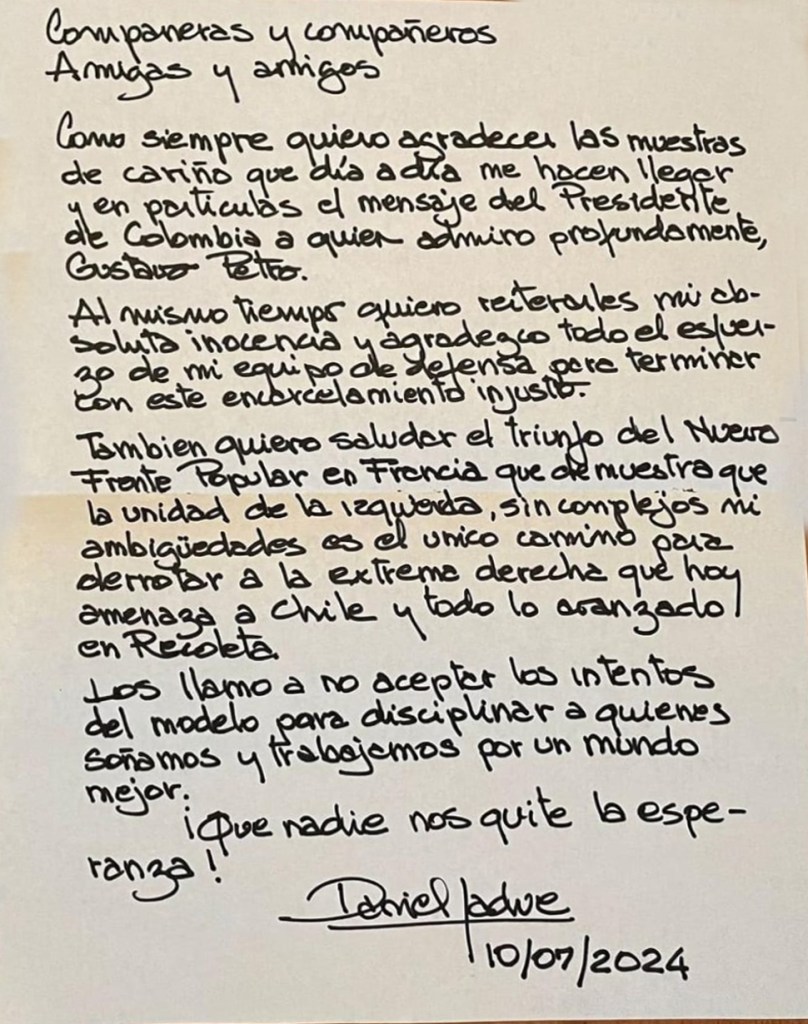 Companeras y compañeros
Amigas y amigos
Como siempre quiero agradecer las muestras
de cariño que día a día me hacen llegar
y en particular el mensaje del Presidente
de Colombia a quien admiro profundamente,
Gustavo Petro.
Al mismo tiempo quiero reiterarles mi ab-
soluta inocencia y agradezco todo el esfuer-
zo de mi equipo de defensa para terminar
con este encarcelamiento injusto.
Tambien quiero saludar el triunfo del Nuevo
Frente Popular en Francia que demuestra que
la unidad de la izquierda, sin complejos ni
ambigüedades es el unico camino para
derrotar a la extrema derecha que hoy
amenaza a Chile y todo lo avanzado
en Recoleta.
Los llamo a no aceptar los intentos
del modelo para disciplinar a quienes
soñamos y trabajamos por un mundo
mejor.
¡Que nadie nos quite la espe-
ranza!
Daniel Jadue
10/07/2024